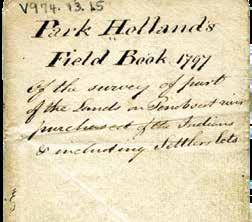 V974.13.15
Park Holland's
Field Book 1797
of the survey of part
of the lands on Penobscot river
purchased of the Indians
& including settlers lots